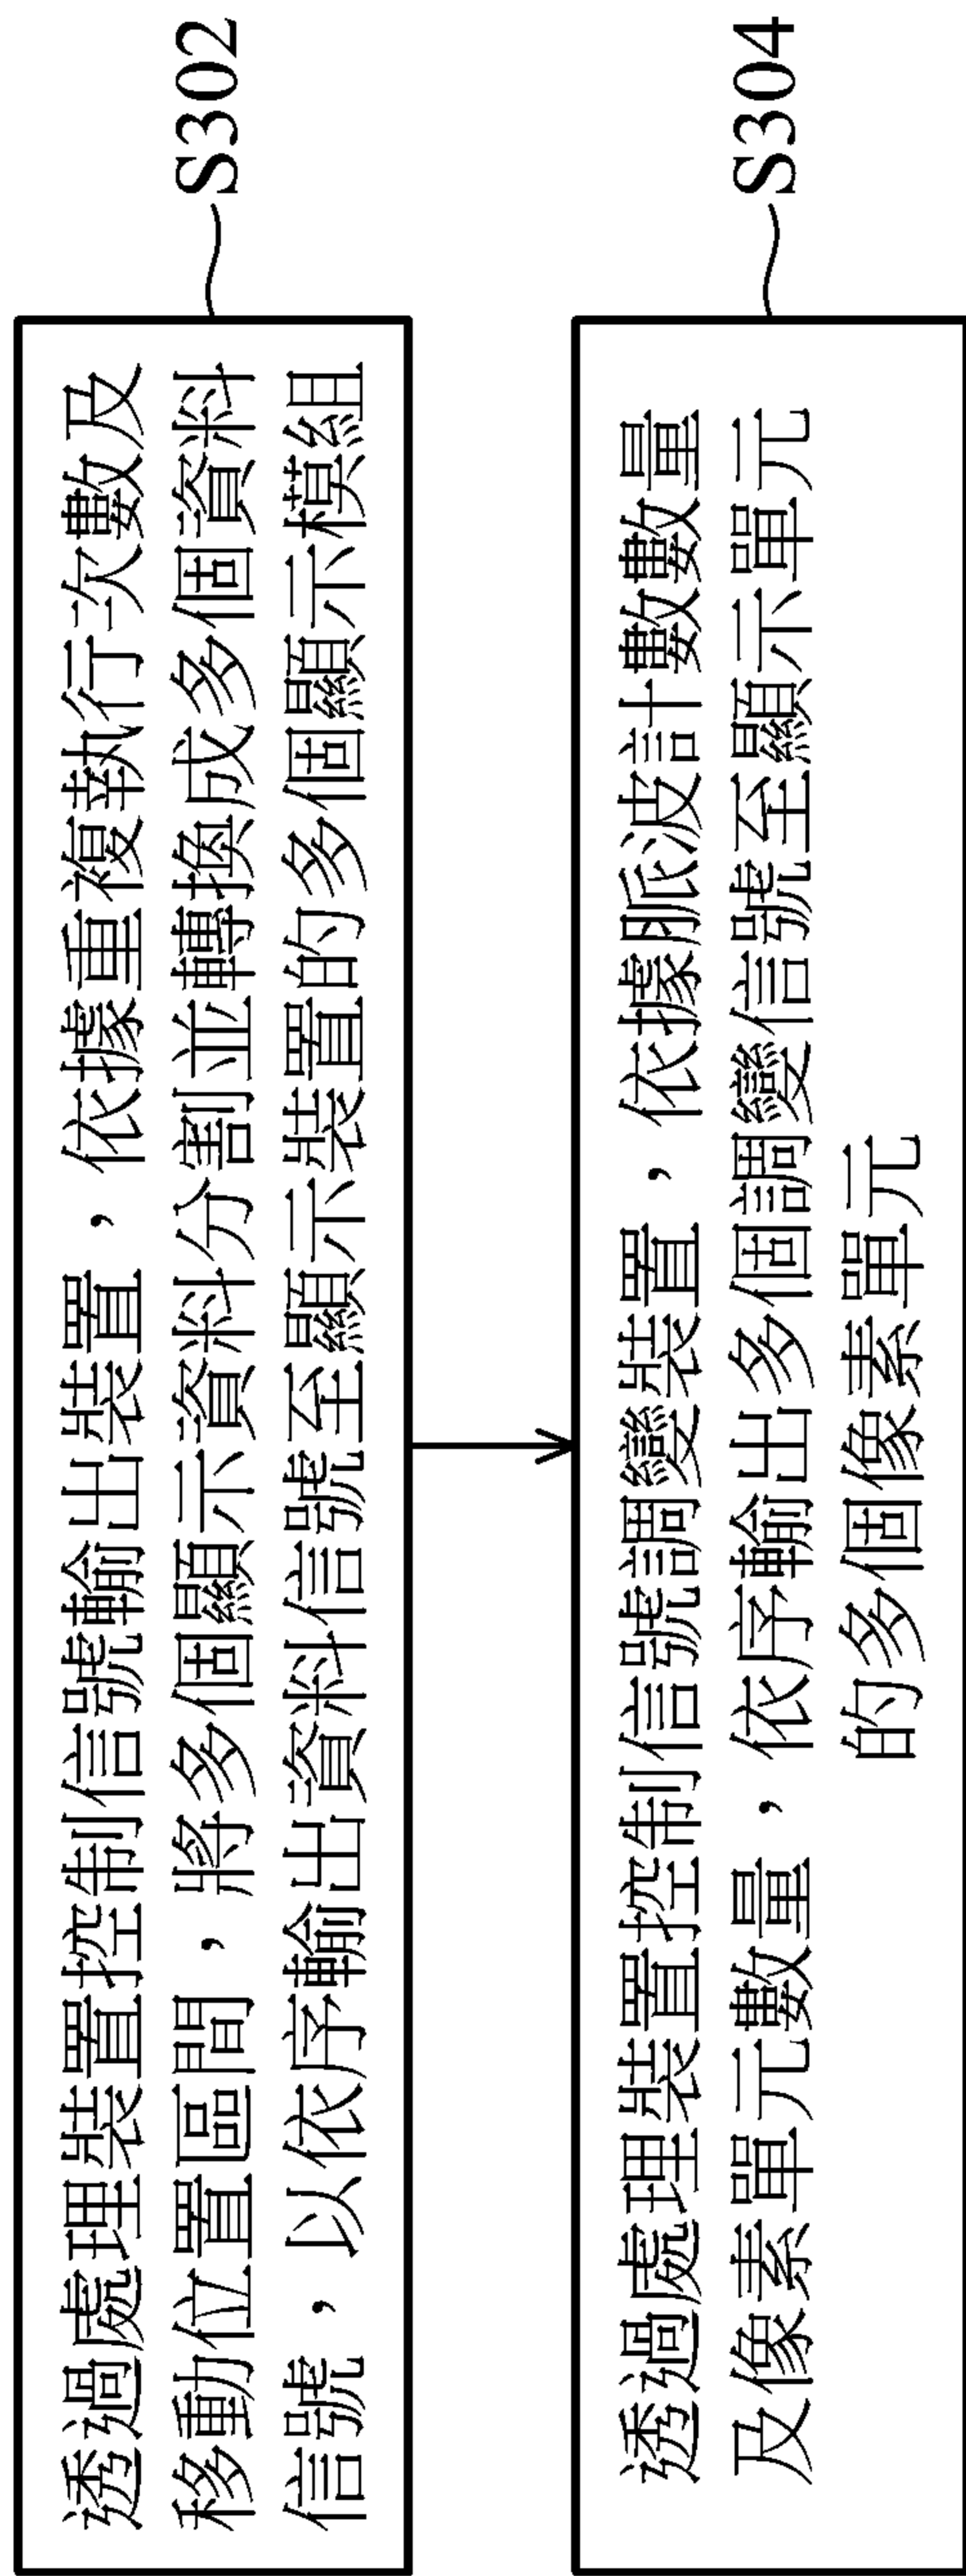 透過處理裝置控制信號輸出裝置，依據重複執行次數及
移動位置區間，將多個顯示資料分割並轉換成多個資料
信號，以依序輸出資料信號至顯示裝置的多個顯示模組
S302
透過處理裝置控制信號調變裝置，依據脈波計數數量
及像素單元數量，依序輸出多個調變信號至顯示單元
的多個像素單元
S304